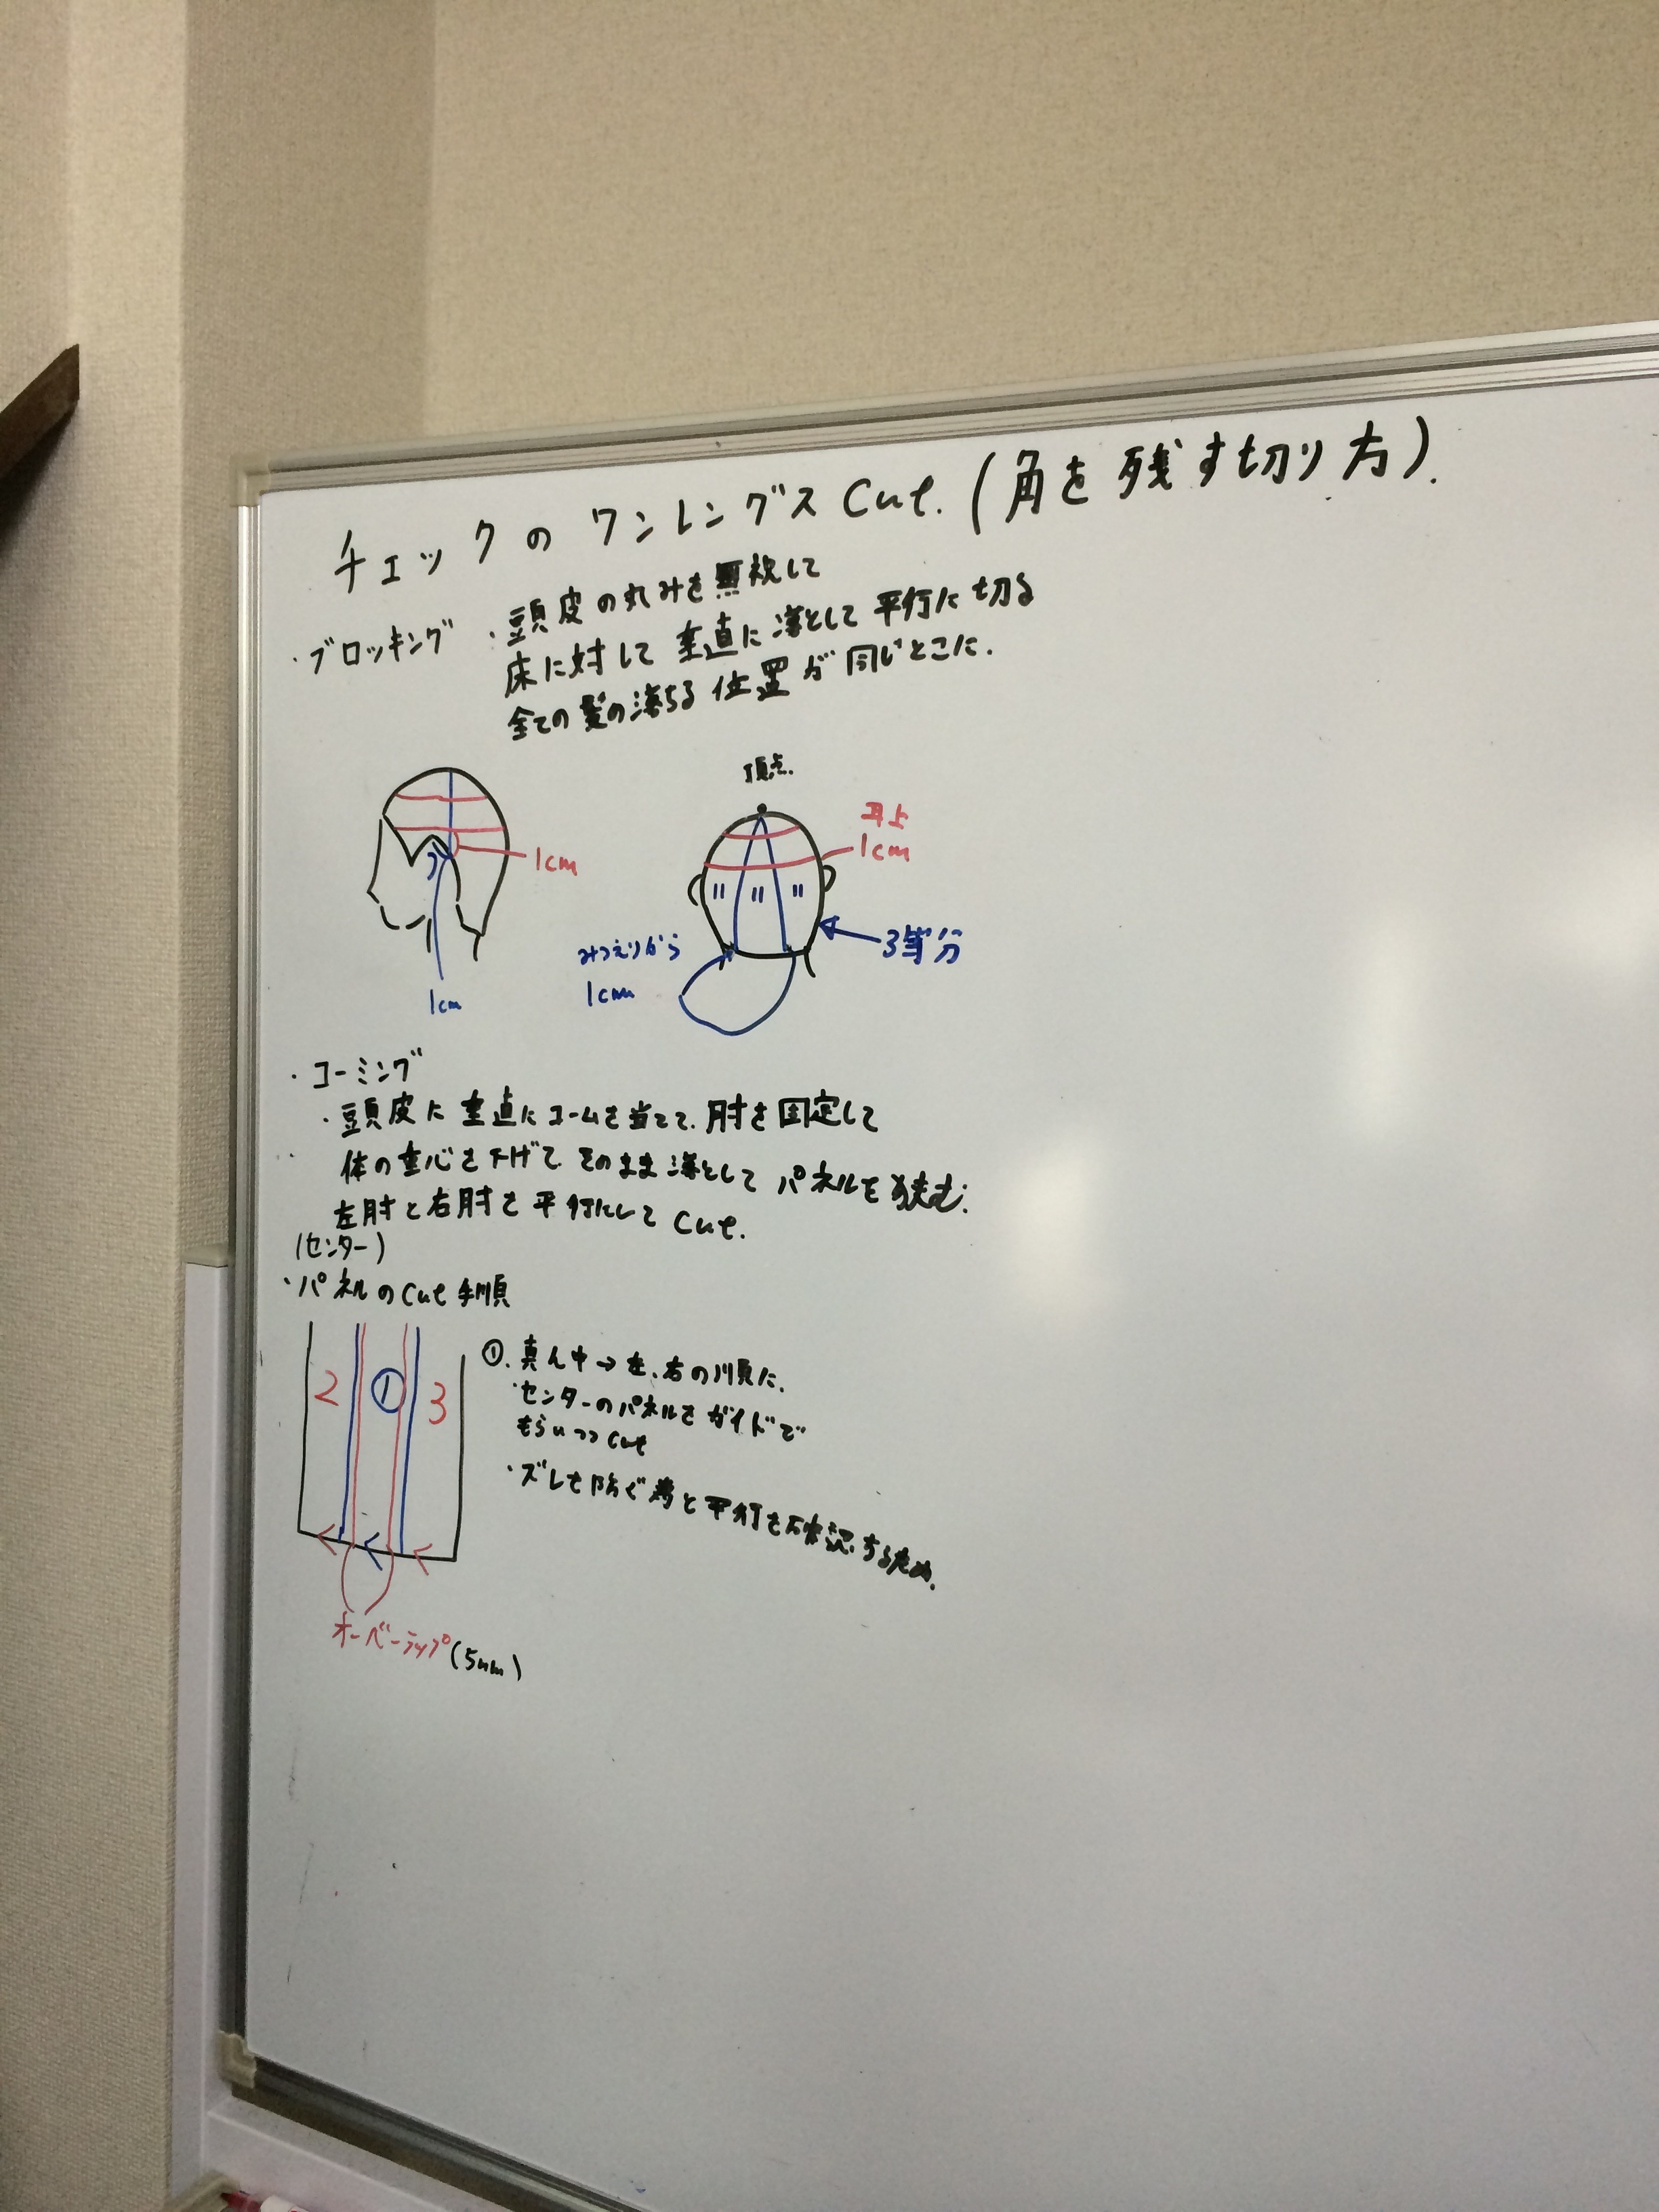 チェックのワンレングスCut.(角を残す切り方).
・ブロッキング
・頭皮の丸みを無視して
床に対して垂直に落として平行に切る
全ての髪の落ちる位置が同じとこに.
頂点.
1cm
1cm
耳上
1cm
みつえりから
1cm
3等分
・コーミング
・頭皮に垂直にコームを当てて.肘を固定して
体の重心を下げて.そのまま落としてパネルを挟む.
左肘と右肘を平行にしてCut.
(センター)
・パネルのCut手順
2 ① 3
①.真ん中→左、右の順に.
・センターのパネルをガイドで
もらいつつcut
・ズレを防ぐ為と平行を確認するため.
オーバーラップ(5mm)